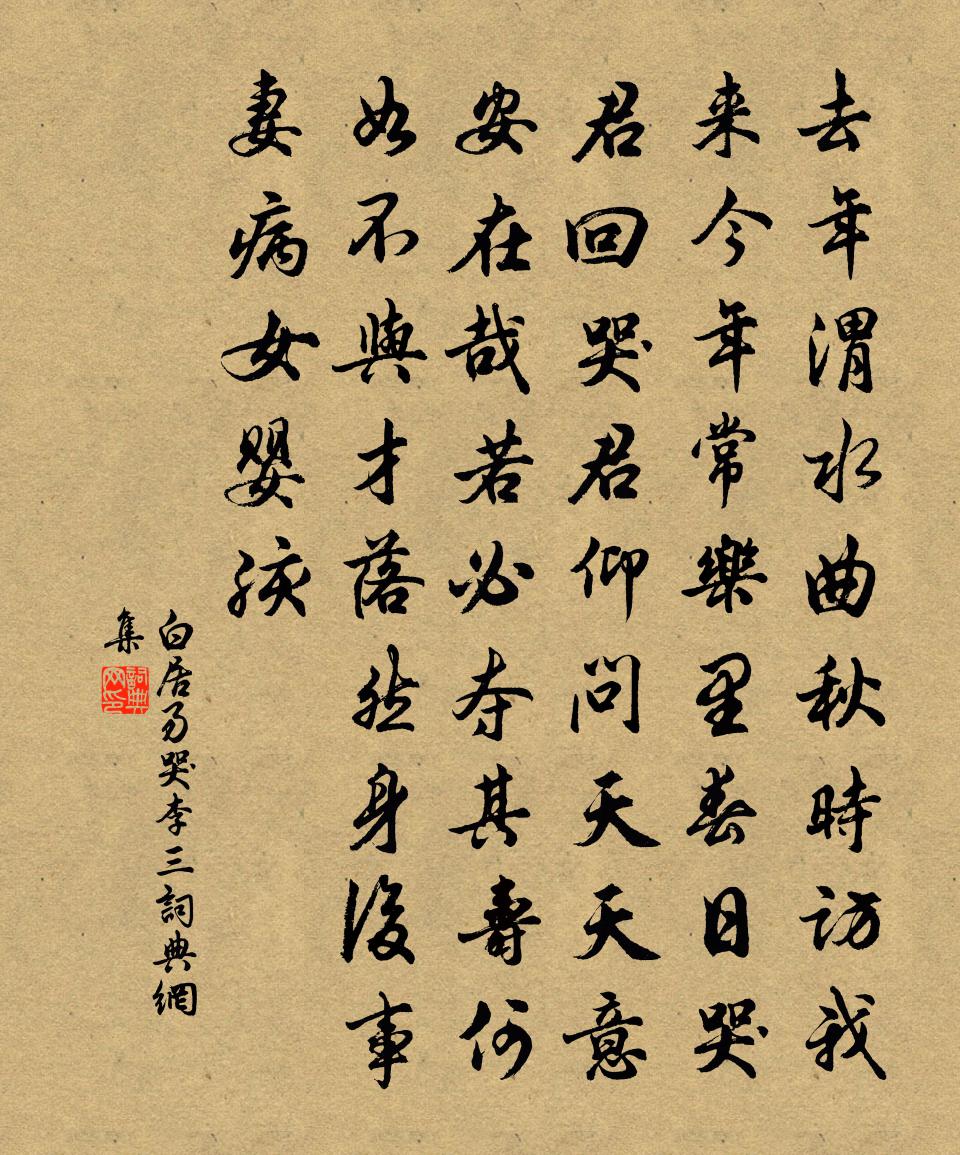 去年渭水曲秋時訪我
来今年常樂里春日哭
君回哭君仰問天天意
安在哉若必夺其壽何
如不與才落然身後事
妻病女嬰孩
白居易哭李三詞典網
集
詞典網印